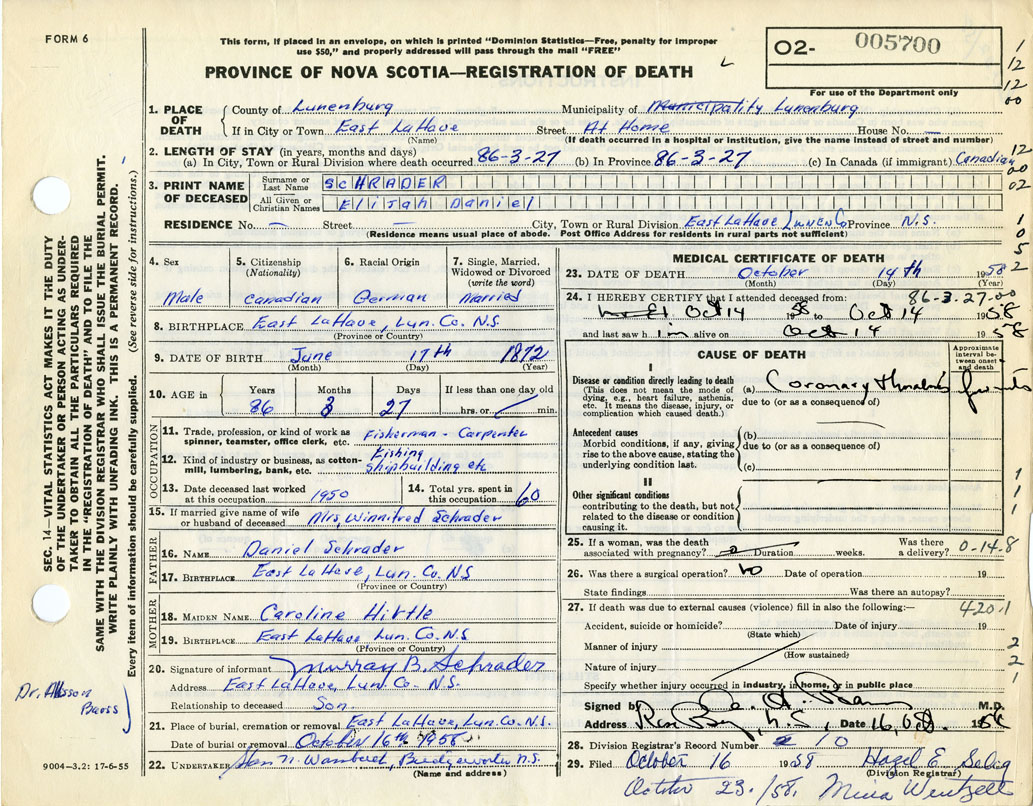 FORM 6
This form, if placed in an envelope, on which is printed "Dominion Statistics—Free, penalty for improper
use $50," and properly addressed will pass through the mail "FREE"
PROVINCE OF NOVA SCOTIA—REGISTRATION OF DEATH
02- 005700
For use of the Department only
SEC. 14—VITAL STATISTICS ACT MAKES IT THE DUTY
OF THE UNDERTAKER OR PERSON ACTING AS UNDER-
TAKER TO OBTAIN ALL THE PARTICULARS REQUIRED
IN THE "REGISTRATION OF DEATH" AND TO FILE THE
SAME WITH THE DIVISION REGISTRAR WHO SHALL ISSUE THE BURIAL PERMIT.
WRITE PLAINLY WITH UNFADING INK. THIS IS A PERMANENT RECORD.
Every item of information should be carefully supplied. (See reverse side for instructions.)
1. PLACE OF DEATH County of Lunenburg Municipality of Municipality Lunenburg
If in City or Town East LaHave Street At Home House No. —
(Name) (If death occurred in a hospital or institution, give the name instead of street and number)
2. LENGTH OF STAY (in years, months and days)
(a) In City, Town or Rural Division where death occurred 86-3-27 (b) In Province 86-3-27 (c) In Canada (if immigrant) Canadian
3. PRINT NAME OF DECEASED
Surname or Last Name SCHRADER
All Given or Christian Names Elijah Daniel
RESIDENCE No. — Street — City, Town or Rural Division East LaHave Lunen Co Province N.S.
(Residence means usual place of abode. Post Office Address for residents in rural parts not sufficient)
4. Sex Male
5. Citizenship (Nationality) Canadian
6. Racial Origin German
7. Single, Married, Widowed or Divorced (write the word) Married
8. BIRTHPLACE East LaHave, Lun. Co. N.S.
(Province or Country)
9. DATE OF BIRTH June 17th 1872
(Month) (Day) (Year)
10. AGE in Years 86 Months 3 Days 27 If less than one day old hrs. or min.
OCCUPATION
11. Trade, profession, or kind of work as spinner, teamster, office clerk, etc. Fisherman - Carpenter
12. Kind of industry or business, as cotton-mill, lumbering, bank, etc. Fishing Shipbuilding etc
13. Date deceased last worked at this occupation 1950
14. Total yrs. spent in this occupation 60
15. If married give name of wife or husband of deceased Mrs. Winnifred Schrader
FATHER
16. NAME Daniel Schrader
17. BIRTHPLACE East LaHave, Lun. Co. N.S
(Province or Country)
MOTHER
18. MAIDEN NAME Caroline Hirtle
19. BIRTHPLACE East LaHave Lun. Co. N.S
(Province or Country)
20. Signature of informant Murray B. Schrader
Address East LaHave, Lun. Co. N.S.
Relationship to deceased Son.
21. Place of burial, cremation or removal East LaHave, Lun. Co. N.S.
Date of burial or removal October 16th 1958
22. UNDERTAKER Bridgewater N.S.
(Name and address)
9004—3.2: 17-6-55
MEDICAL CERTIFICATE OF DEATH
23. DATE OF DEATH October 14th 1958
(Month) (Day) (Year)
86-3-27-00
24. I HEREBY CERTIFY that I attended deceased from:
Oct 14 1958 to Oct 14 1958
and last saw him alive on Oct 14 1958
CAUSE OF DEATH
Approximate interval between onset and death
I
Disease or condition directly leading to death
(This does not mean the mode of dying, e.g., heart failure, asthenia, etc. It means the disease, injury, or complication which caused death.)
(a) Coronary
due to (or as a consequence of)
Antecedent causes
Morbid conditions, if any, giving rise to the above cause, stating the underlying condition last.
(b)
due to (or as a consequence of)
(c)
II
Other significant conditions
contributing to the death, but not related to the disease or condition causing it.
25. If a woman, was the death associated with pregnancy? Duration weeks. Was there a delivery? 0-14-8
26. Was there a surgical operation? No Date of operation 19
State findings Was there an autopsy?
27. If death was due to external causes (violence) fill in also the following:— 420.1
Accident, suicide or homicide? Date of injury 19
(State which)
Manner of injury
(How sustained)
Nature of injury
Specify whether injury occurred in industry, in home, or in public place
Signed by M.D.
Address Rose Bay, N.S. Date 16, Oct. 1958
28. Division Registrar's Record Number 10
29. Filed October 16 1958 Hazel E. Selig
(Division Registrar)
October 23./58. Mina Wentzell